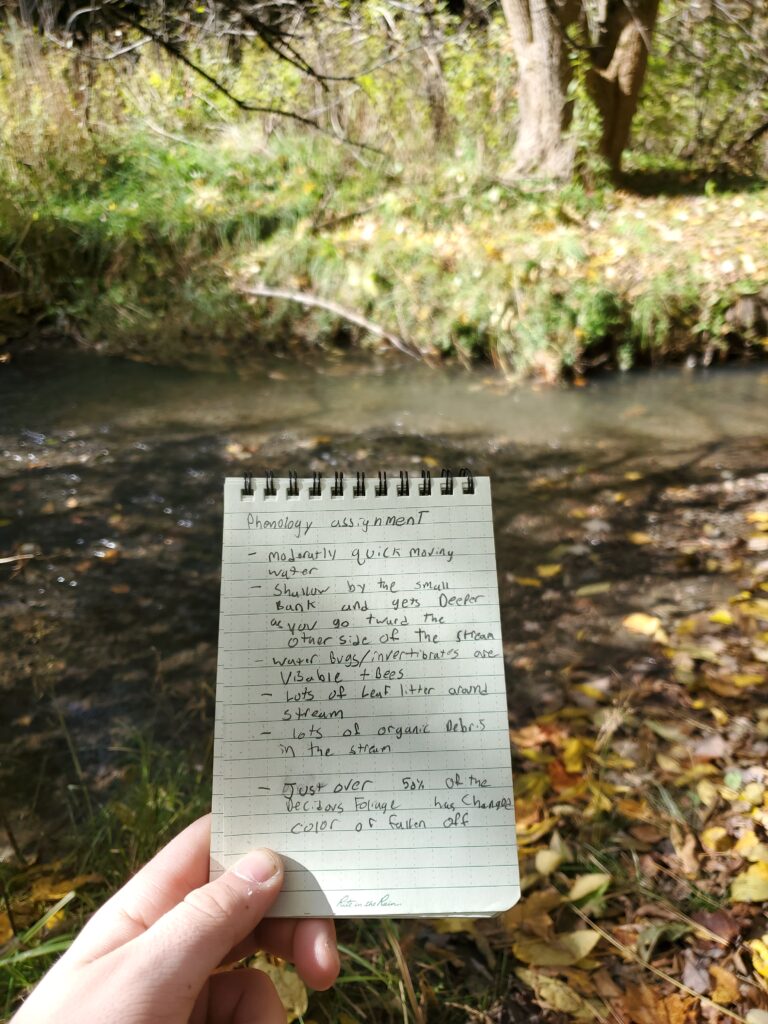 Phenology assignment
- moderatly quick moving
water
- Shallow by the small
Bank and gets Deeper
as you go tward the
other side of the stream
- water Bugs/invertibrates are
Visable + Bees
- Lots of Leaf litter around
stream
- lots of organic Debris
in the stream
- Just over 50% of the
Decidors Foliage has Changed
color or fallen off
Rite in the Rain